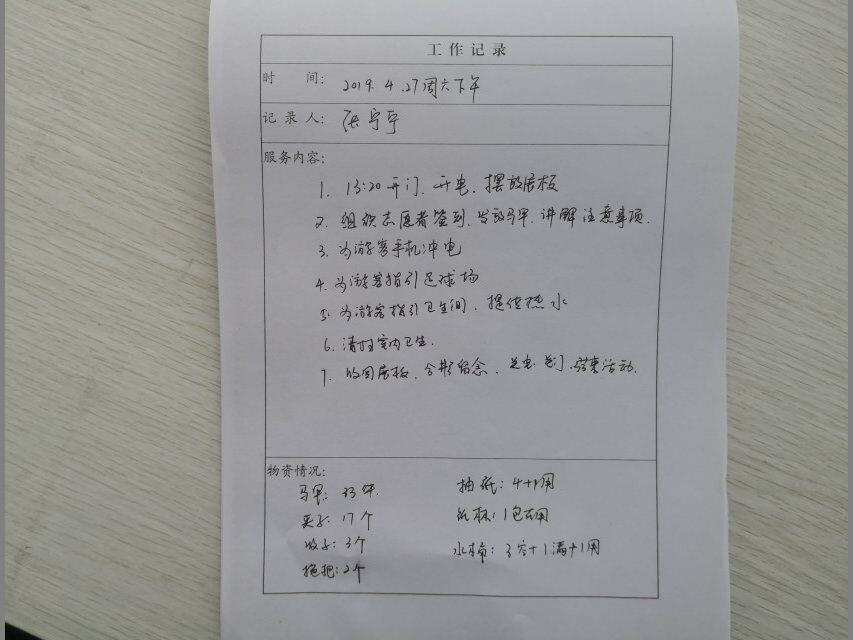 工作记录
时 间: 2019.4.27周六下午
记录人: 张宁宁
服务内容:
1. 13:20开门、开电、摆放展板
2. 组织志愿者签到、发放马甲、讲解注意事项.
3. 为游客手机冲电
4. 为游客指引足球场
5. 为游客指引卫生间、提供热水
6. 清扫室内卫生.
7. 收回展板、合影留念、关电关门、结束活动.
物资情况:
马甲: 33件. 抽纸: 4+1用
夹子: 17个 纸杯: 1包在用
3个 水桶: 3空+1满+1用
拖把: 2个